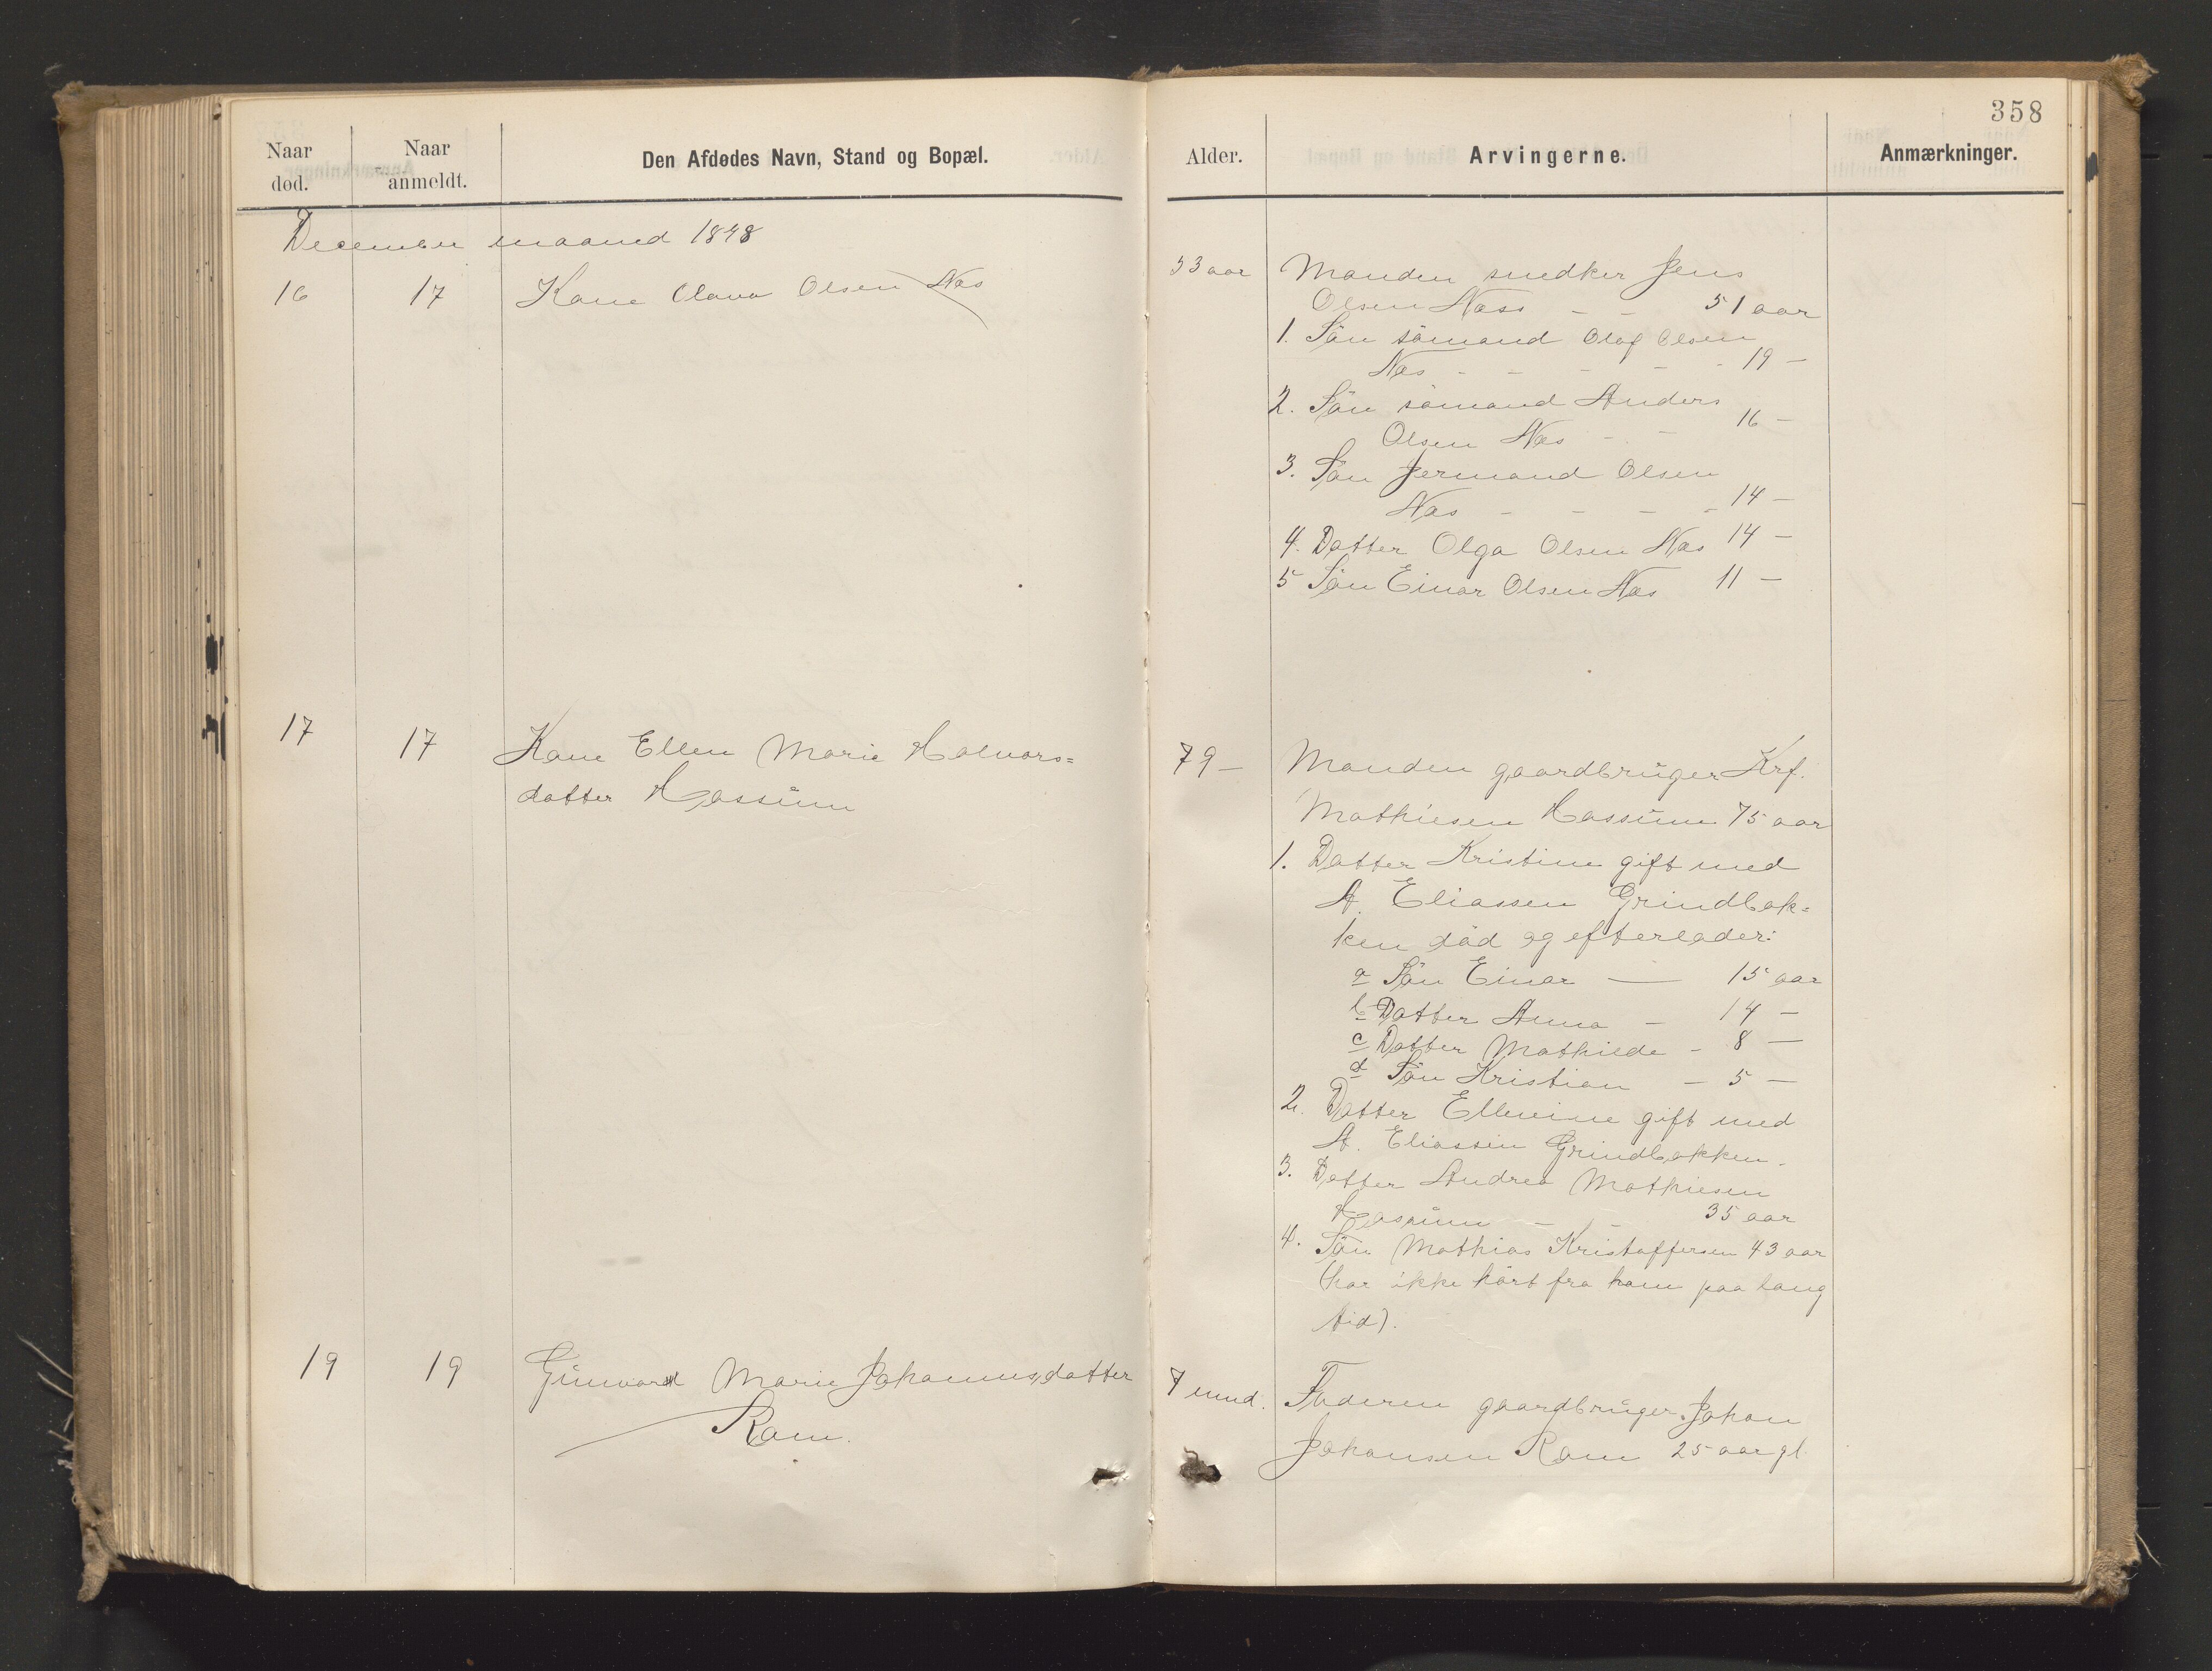 358
Naar død.
Naar anmeldt.
Den Afdødes Navn, Stand og Bopæl.
Alder.
Arvingerne.
Anmærkninger.
December maaned 1898
16 17 Kone Olava Olsen Næs
53 aar
Manden snedker Jens
Olsen Næss – – 51 aar
1. Sön sömand Olaf Olsen
Næs - - - - - 19 –
2. Sön sömand Anders
Olsen Næs - - 16 –
3. Sön Jermand Olsen
Næs - - - - 14 –
4. Datter Olga Olsen Næs 14 –
5 Sön Einar Olsen Næs 11 –
17 17 Kone Ellen Marie Halvors=
datter Hassum
79 –
Manden gaardbruger Krf.
Mathiesen Hassum 75 aar
1. Datter Kristine gift med
A. Eliassen Grindbak=
ken död og efterlader:
a Sön Einar — 15 aar
b Datter Anna – 14 –
c Datter Mathilde – 8 –
d Sön Kristian – 5 –
2. Datter Ellevine gift med
A. Eliassen Grindbakken.
3. Datter Andrea Mathiesen
Hassum – – 35 aar
4. Sön Mathias Kristoffersen 43 aar
(har ikke hört fra ham paa lang
tid).
19 19 Gunvord Marie Johannesdatter
Ram.
7 mnd.
Faderen gaardbruger Johan
Johansen Ram 25 aar gl.